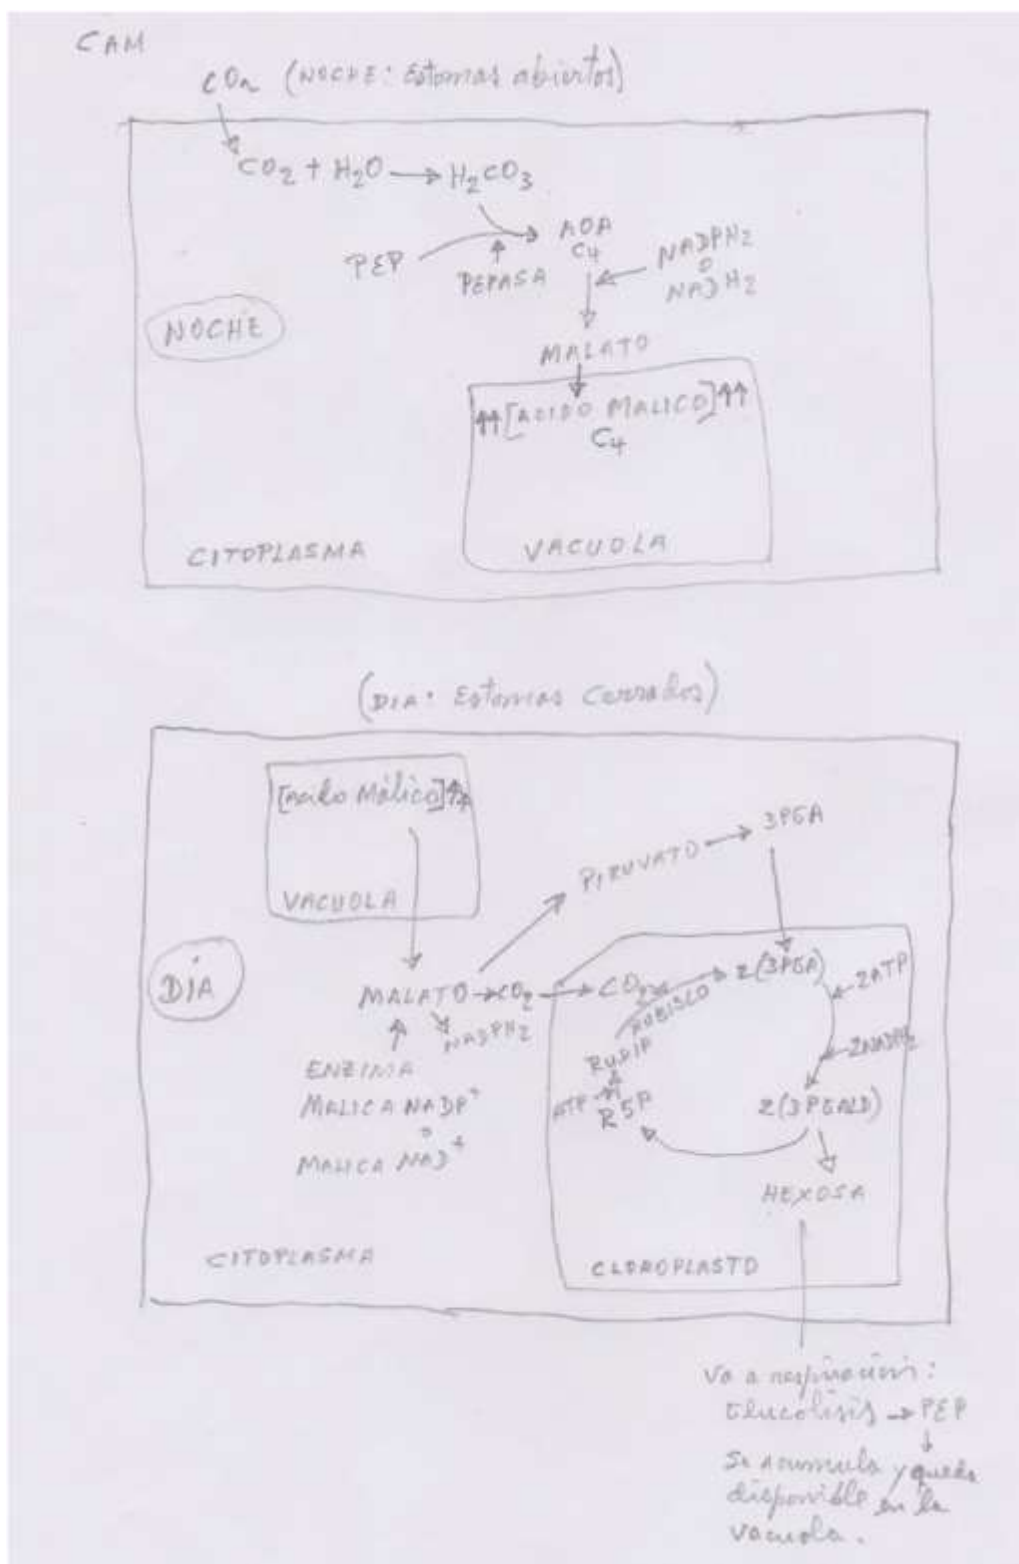 CAM
CO₂ (NOCHE: Estomas abiertos)
CO₂ + H₂O → H₂CO₃
PEP
PEPASA
AOA
C₄
NADPH₂
o
NADH₂
NOCHE
MALATO
↑↑[ACIDO MALICO]↑↑
C₄
CITOPLASMA
VACUOLA
(DIA: Estomas Cerrados)
[Acido Málico]↑↑
VACUOLA
PIRUVATO → 3PGA
DÍA
MALATO → CO₂ → CO₂
NADPH₂
ENZIMA
MALICA NADP⁺
o
MALICA NAD⁺
RUBISCO
2(3PGA)
2ATP
2NADPH₂
RUDIP
ATP
R5P
2(3PGALD)
HEXOSA
CITOPLASMA
CLOROPLASTO
Va a respiración:
Glucolisis → PEP
↓
Se acumula y queda
disponible en la
vacuola.